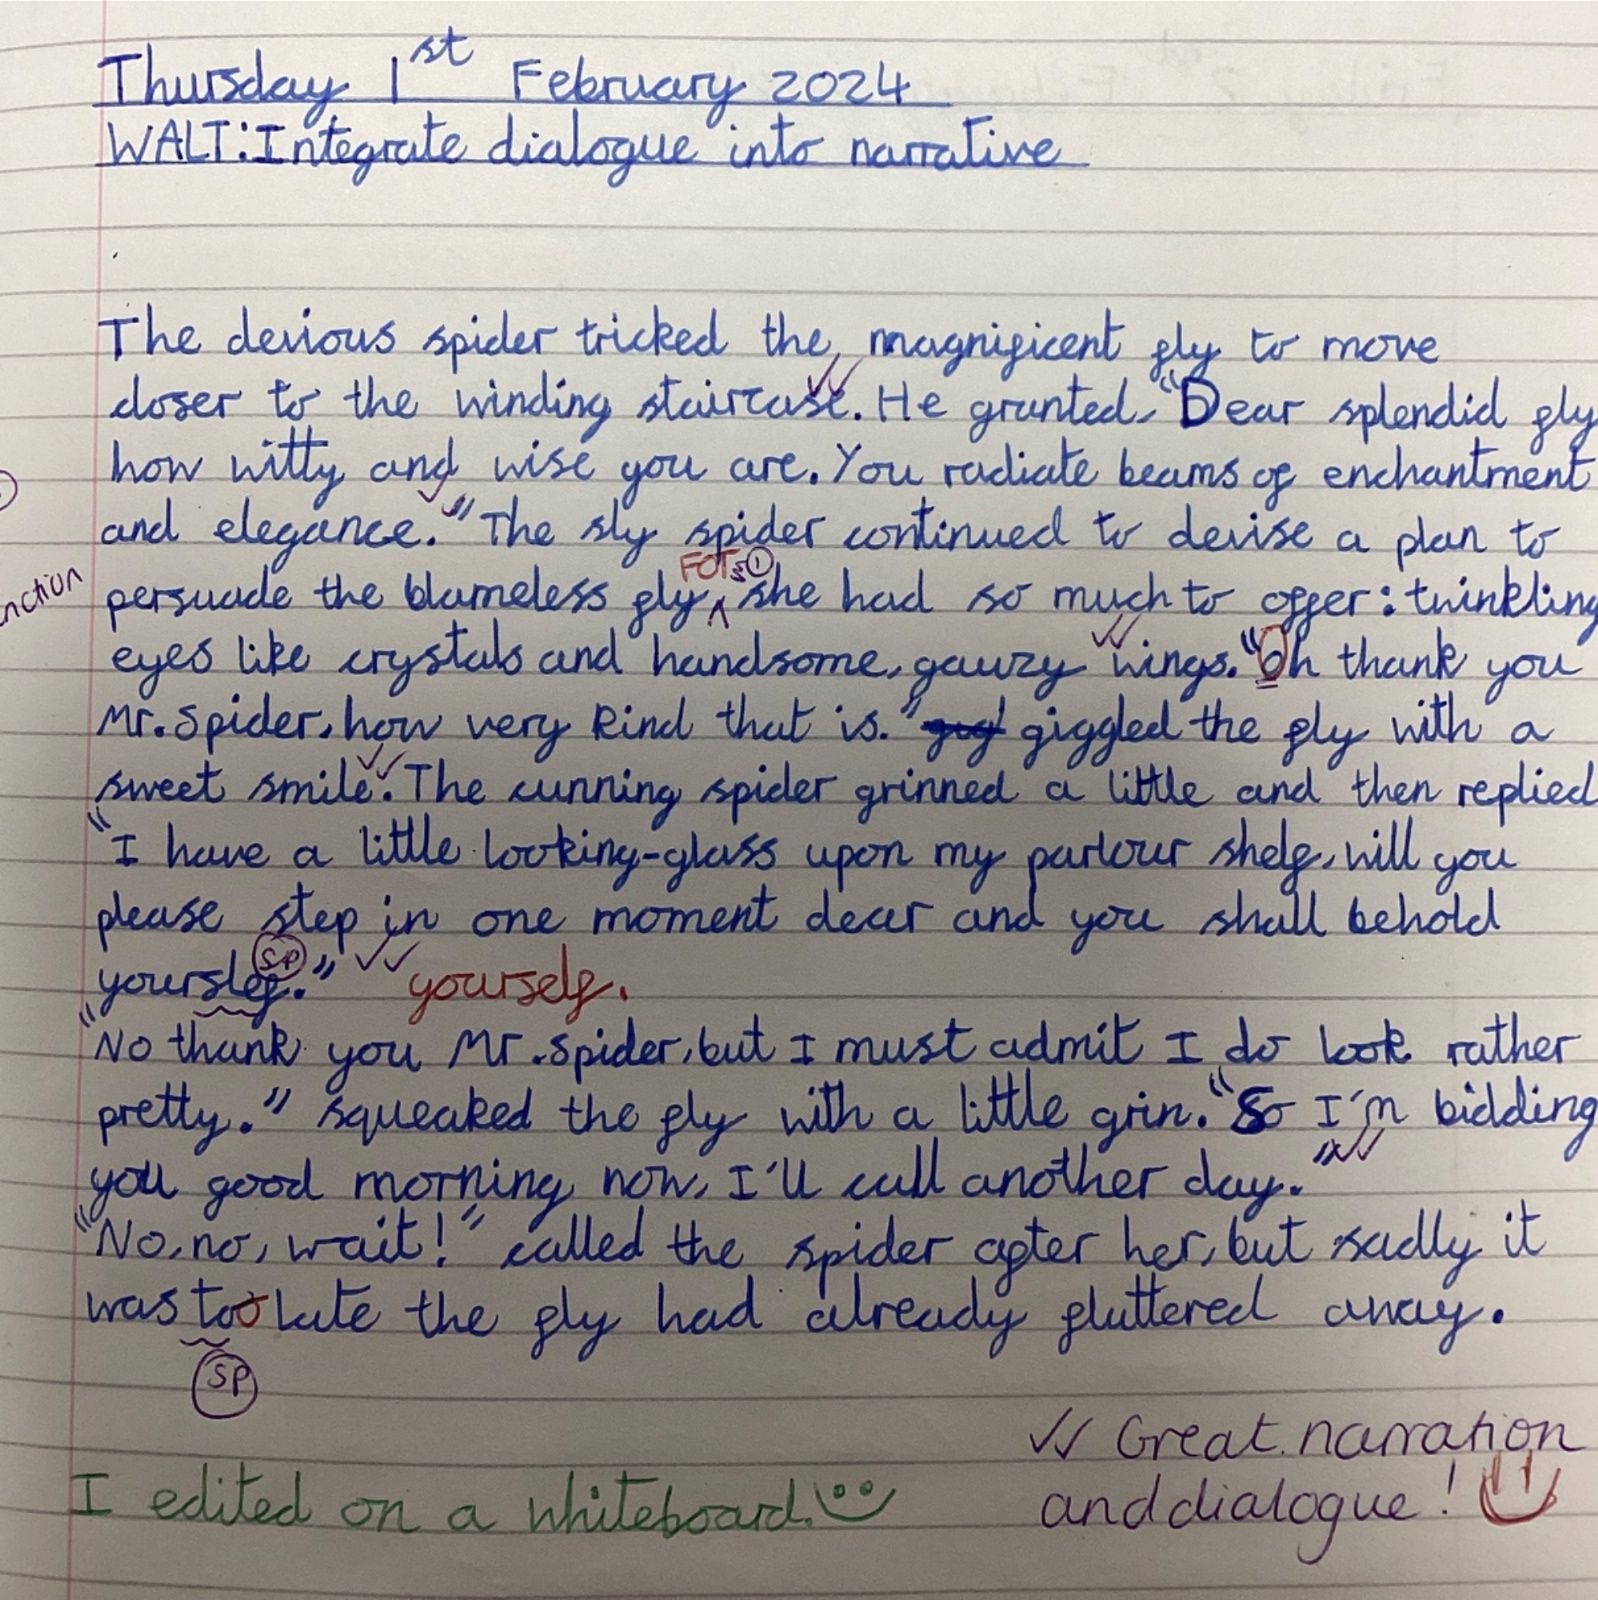 Thursday 1st February 2024
WALT: Integrate dialogue into narrative
The devious spider tricked the magnificent fly to move
closer to the winding staircase. He grunted, "Dear splendid fly
how witty and wise you are. You radiate beams of enchantment
and elegance." The sly spider continued to devise a plan to
FOR ①
persuade the blameless fly ^ she had so much to offer: twinkling
eyes like crystals and handsome, gauzy wings. "Oh thank you
Mr. Spider, how very kind that is." giggled the fly with a
sweet smile. The cunning spider grinned a little and then replied
"I have a little looking-glass upon my parlour shelf, will you
please step in one moment dear and you shall behold
sp
yourslef." yourself.
"No thank you Mr. Spider, but I must admit I do look rather
pretty." squeaked the fly with a little grin. "So I'm bidding
you good morning now, I'll call another day."
"No, no, wait!" called the spider after her, but sadly it
was too late the fly had already fluttered away.
sp
✓✓ Great narration
and dialogue!
I edited on a whiteboard.